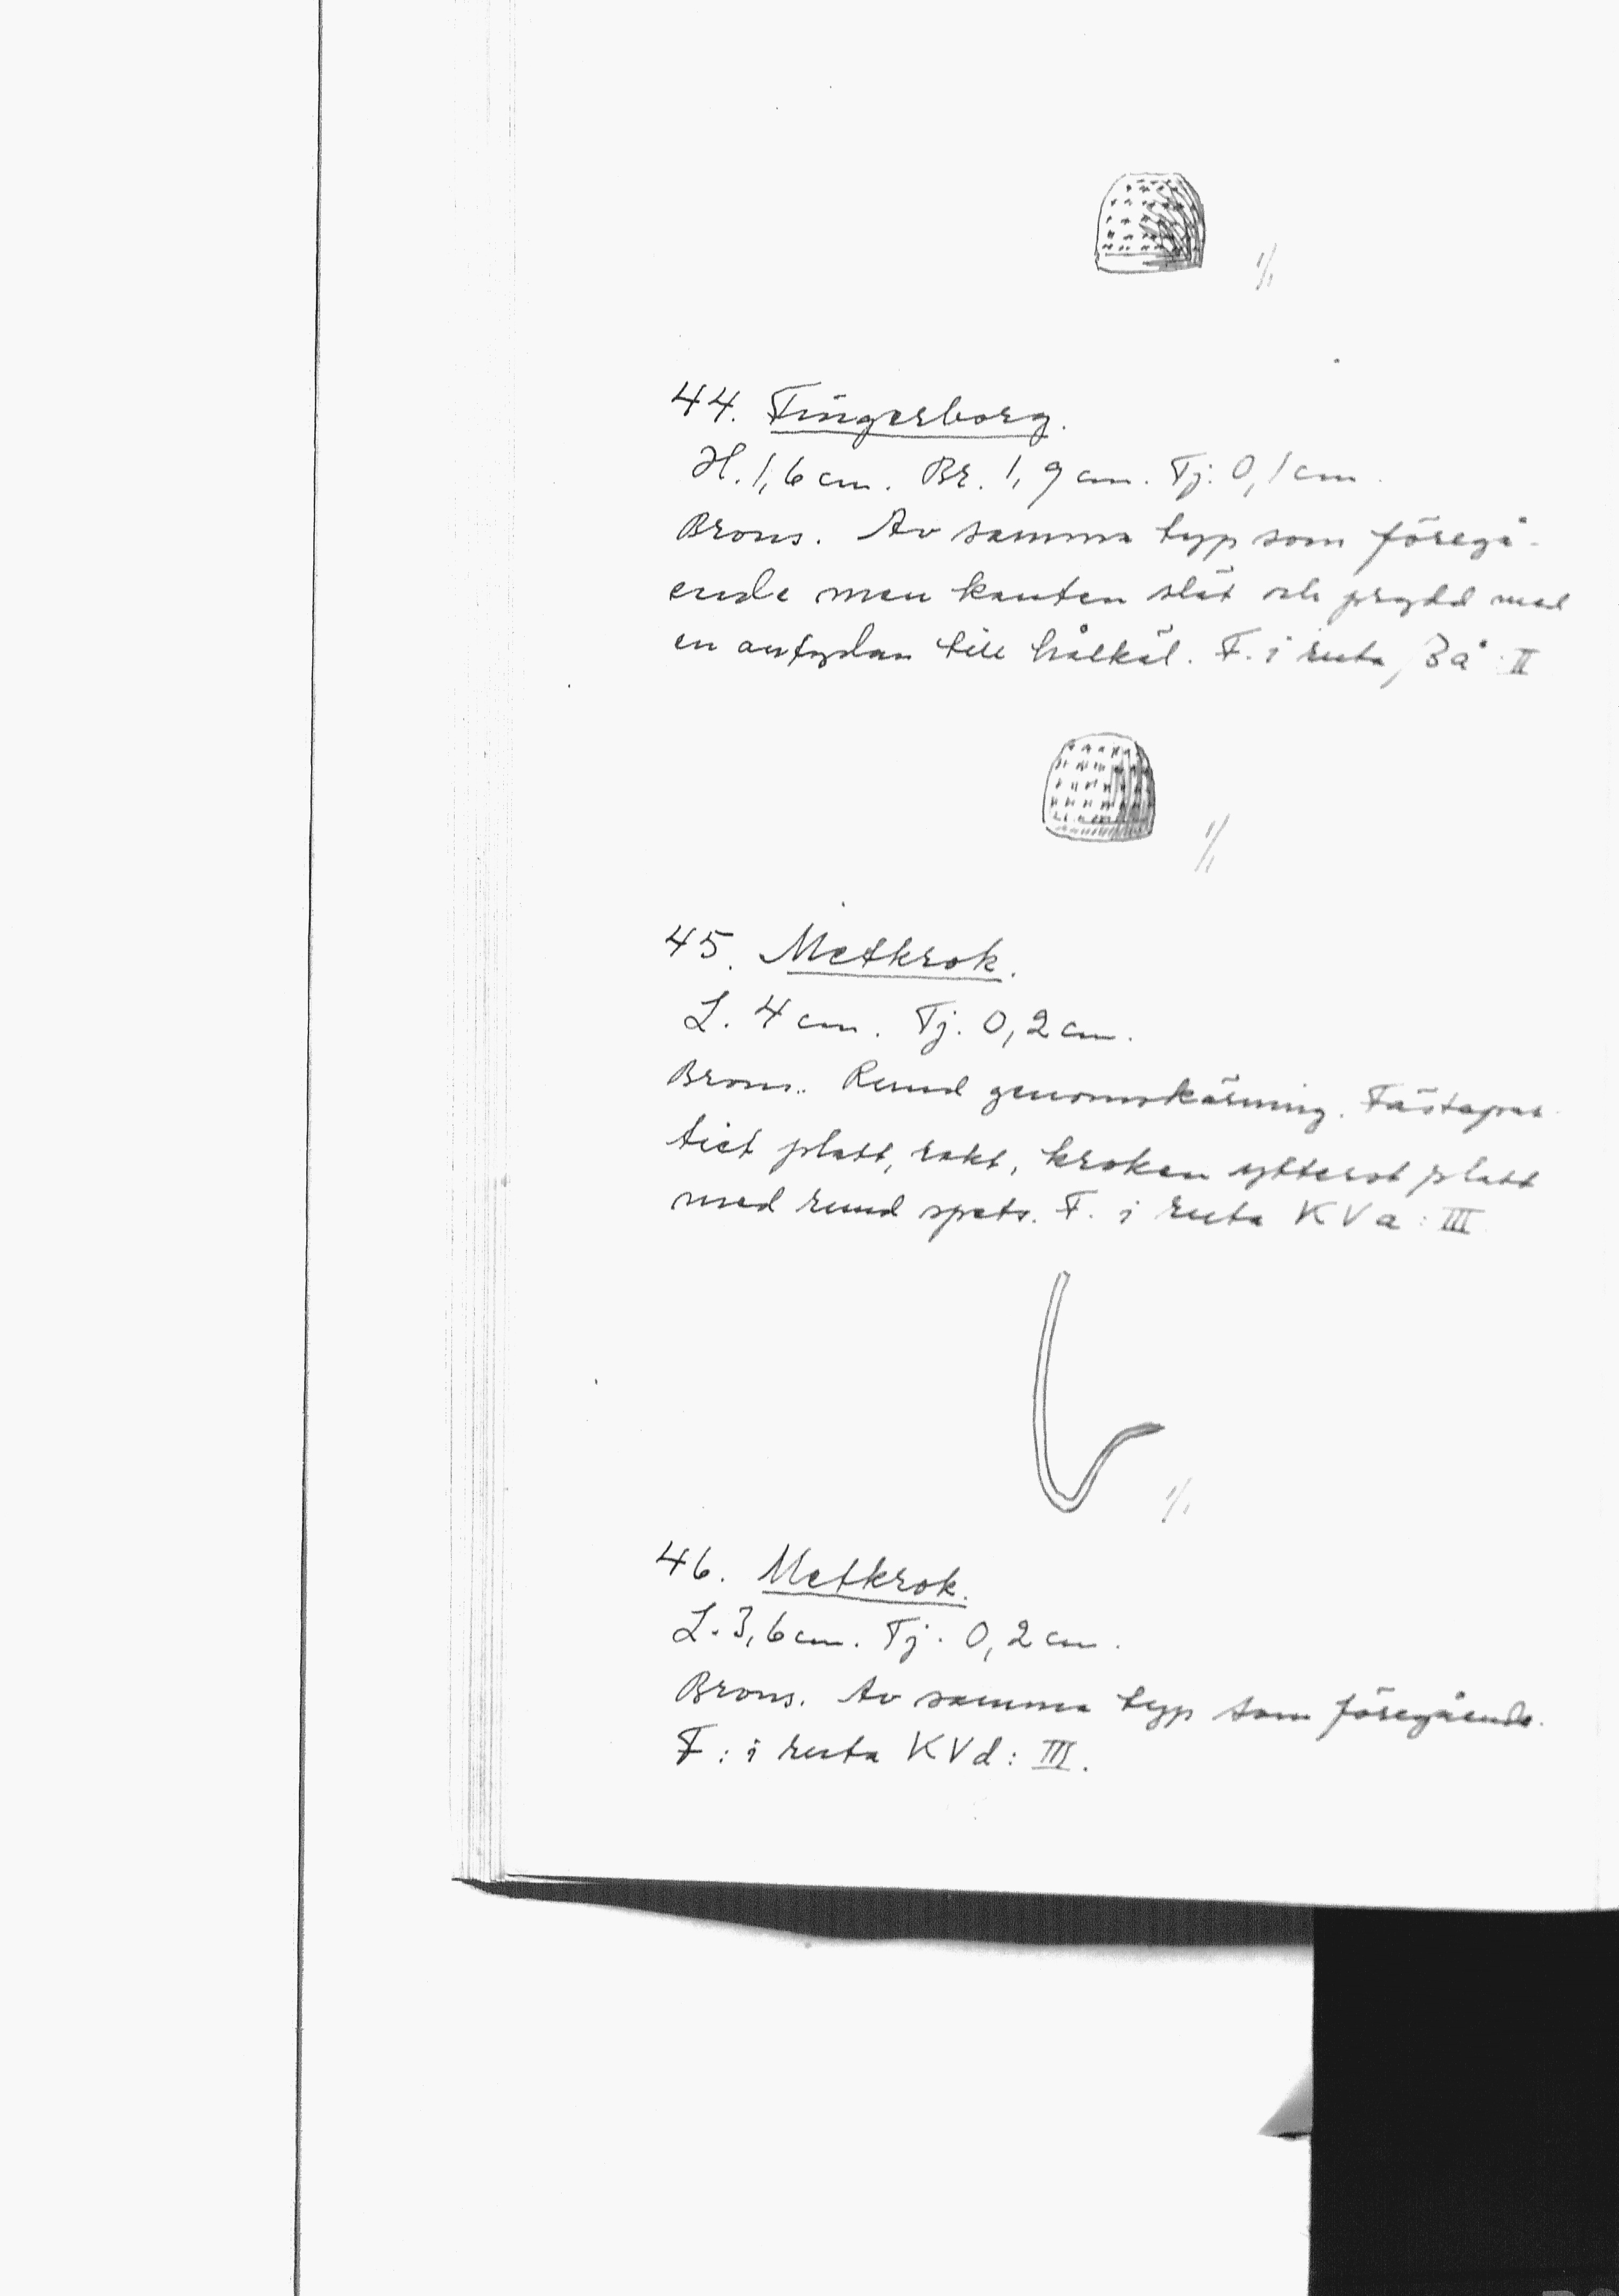 1/1
44. Fingerborg.
H. 1,6 cm. Br. 1,9 cm. Tj. 0,1 cm.
Brons. Av samma typ som föregå-
ende men kanten slät och prydd med
en antydan till hålkäl. F. i ruta Bå: II
1/1
45. Metkrok.
L. 4 cm. Tj. 0,2 cm.
Brons. Rund genomskärning. Fästepar-
tiet platt, rakt, kroken ytterst platt
med rund spets. F. i ruta KVa: III
1/1
46. Metkrok.
L. 3,6 cm. Tj. 0,2 cm.
Brons. Av samma typ som föregående.
F: i ruta KVd: III.